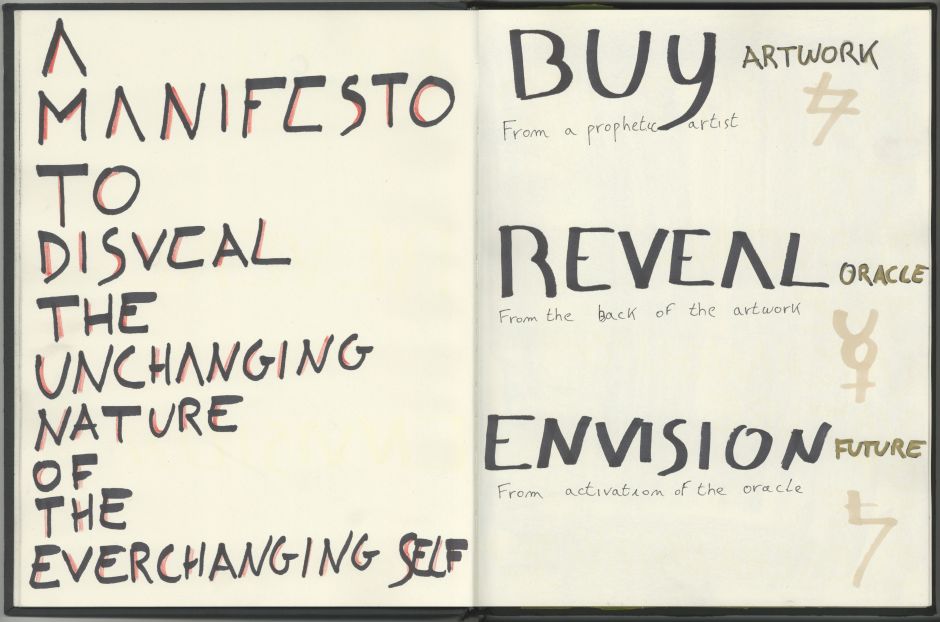 A
MANIFESTO
TO
DISVEAL
THE
UNCHANGING
NATURE
OF
THE
EVERCHANGING SELF
BUY ARTWORK
From a prophetic artist
REVEAL ORACLE
From the back of the artwork
ENVISION FUTURE
From activation of the oracle